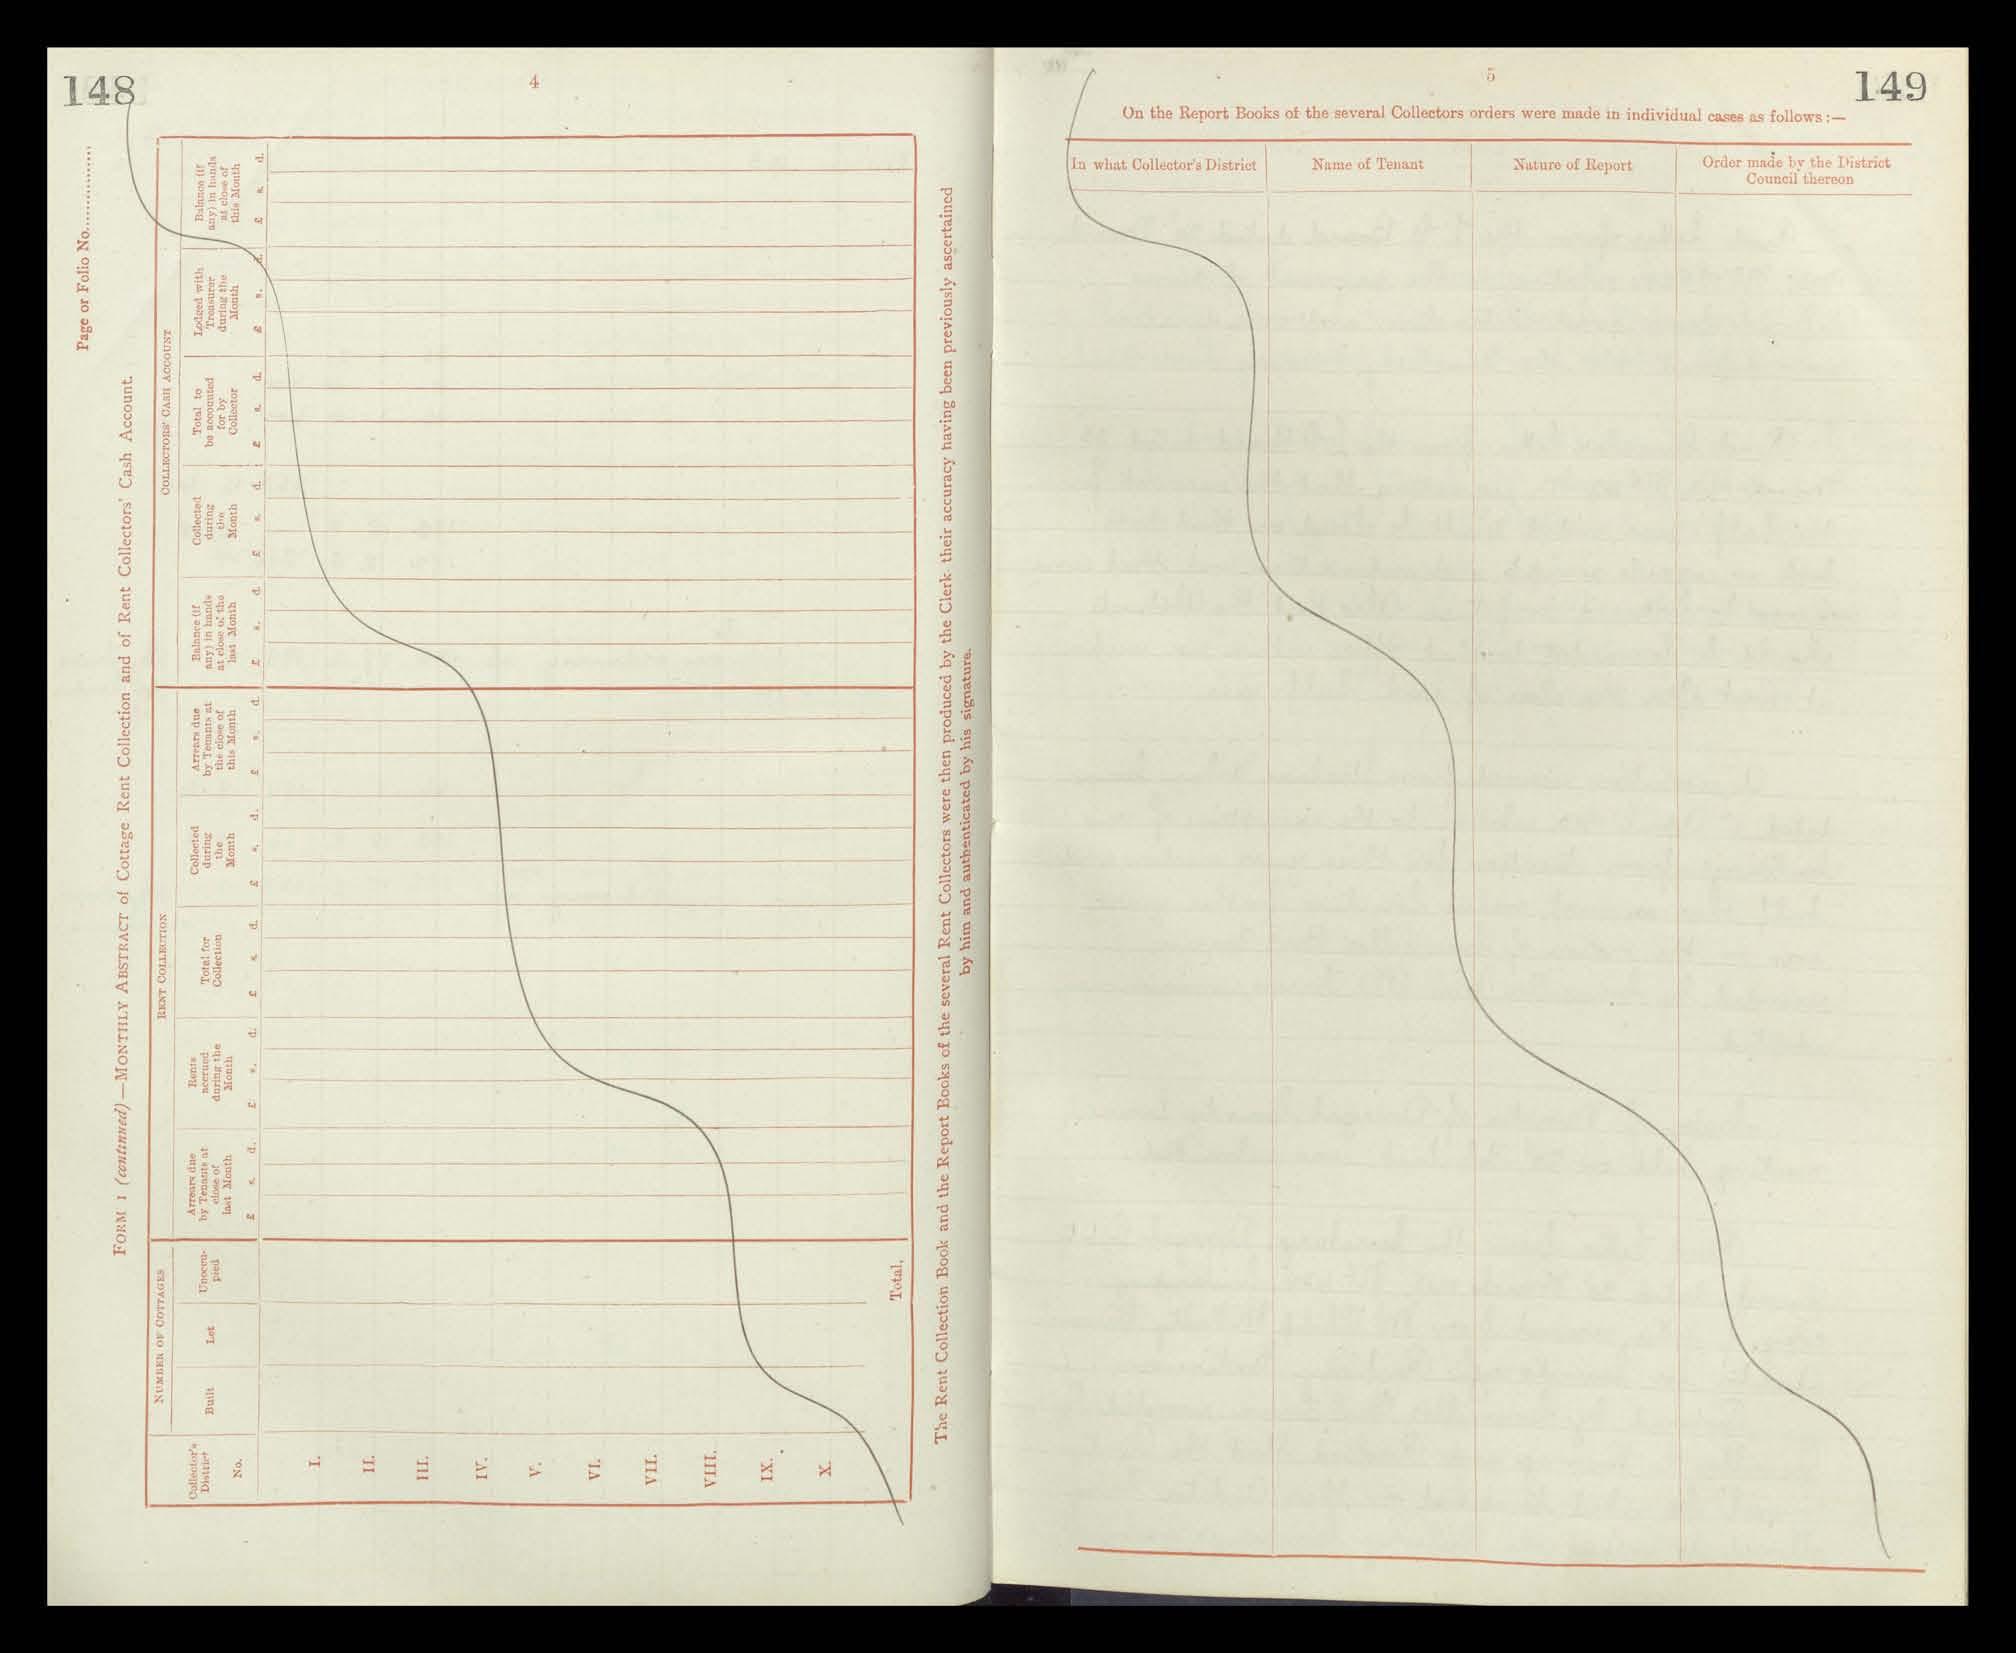 148
4
Page or Folio No.................
FORM 1 (continued)—MONTHLY ABSTRACT of Cottage Rent Collection and of Rent Collectors' Cash Account.
Collector's District
No.
NUMBER OF COTTAGES
Built
Let
Unoccu-
pied
RENT COLLECTION
Arrears due
by Tenants at
close of
last Month
£ s. d.
Rents
accrued
during the
Month
£ s. d.
Total for
Collection
£ s. d.
Collected
during
the
Month
£ s. d.
Arrears due
by Tenants at
the close of
this Month
£ s. d.
COLLECTORS' CASH ACCOUNT
Balance (if
any) in hands
at close of the
last Month
£ s. d.
Collected
during
the
Month
£ s. d.
Total to
be accounted
for by
Collector
£ s. d.
Lodged with
Treasurer
during the
Month
£ s. d.
Balance (if
any) in hands
at close of
this Month
£ s. d.
I.
II.
III.
IV.
V.
VI.
VII.
VIII.
IX.
X.
Total,
The Rent Collection Book and the Report Books of the several Rent Collectors were then produced by the Clerk their accuracy having been previously ascertained
by him and authenticated by his signature.
5
149
On the Report Books of the several Collectors orders were made in individual cases as follows:—
In what Collector's District
Name of Tenant
Nature of Report
Order made by the District
Council thereon